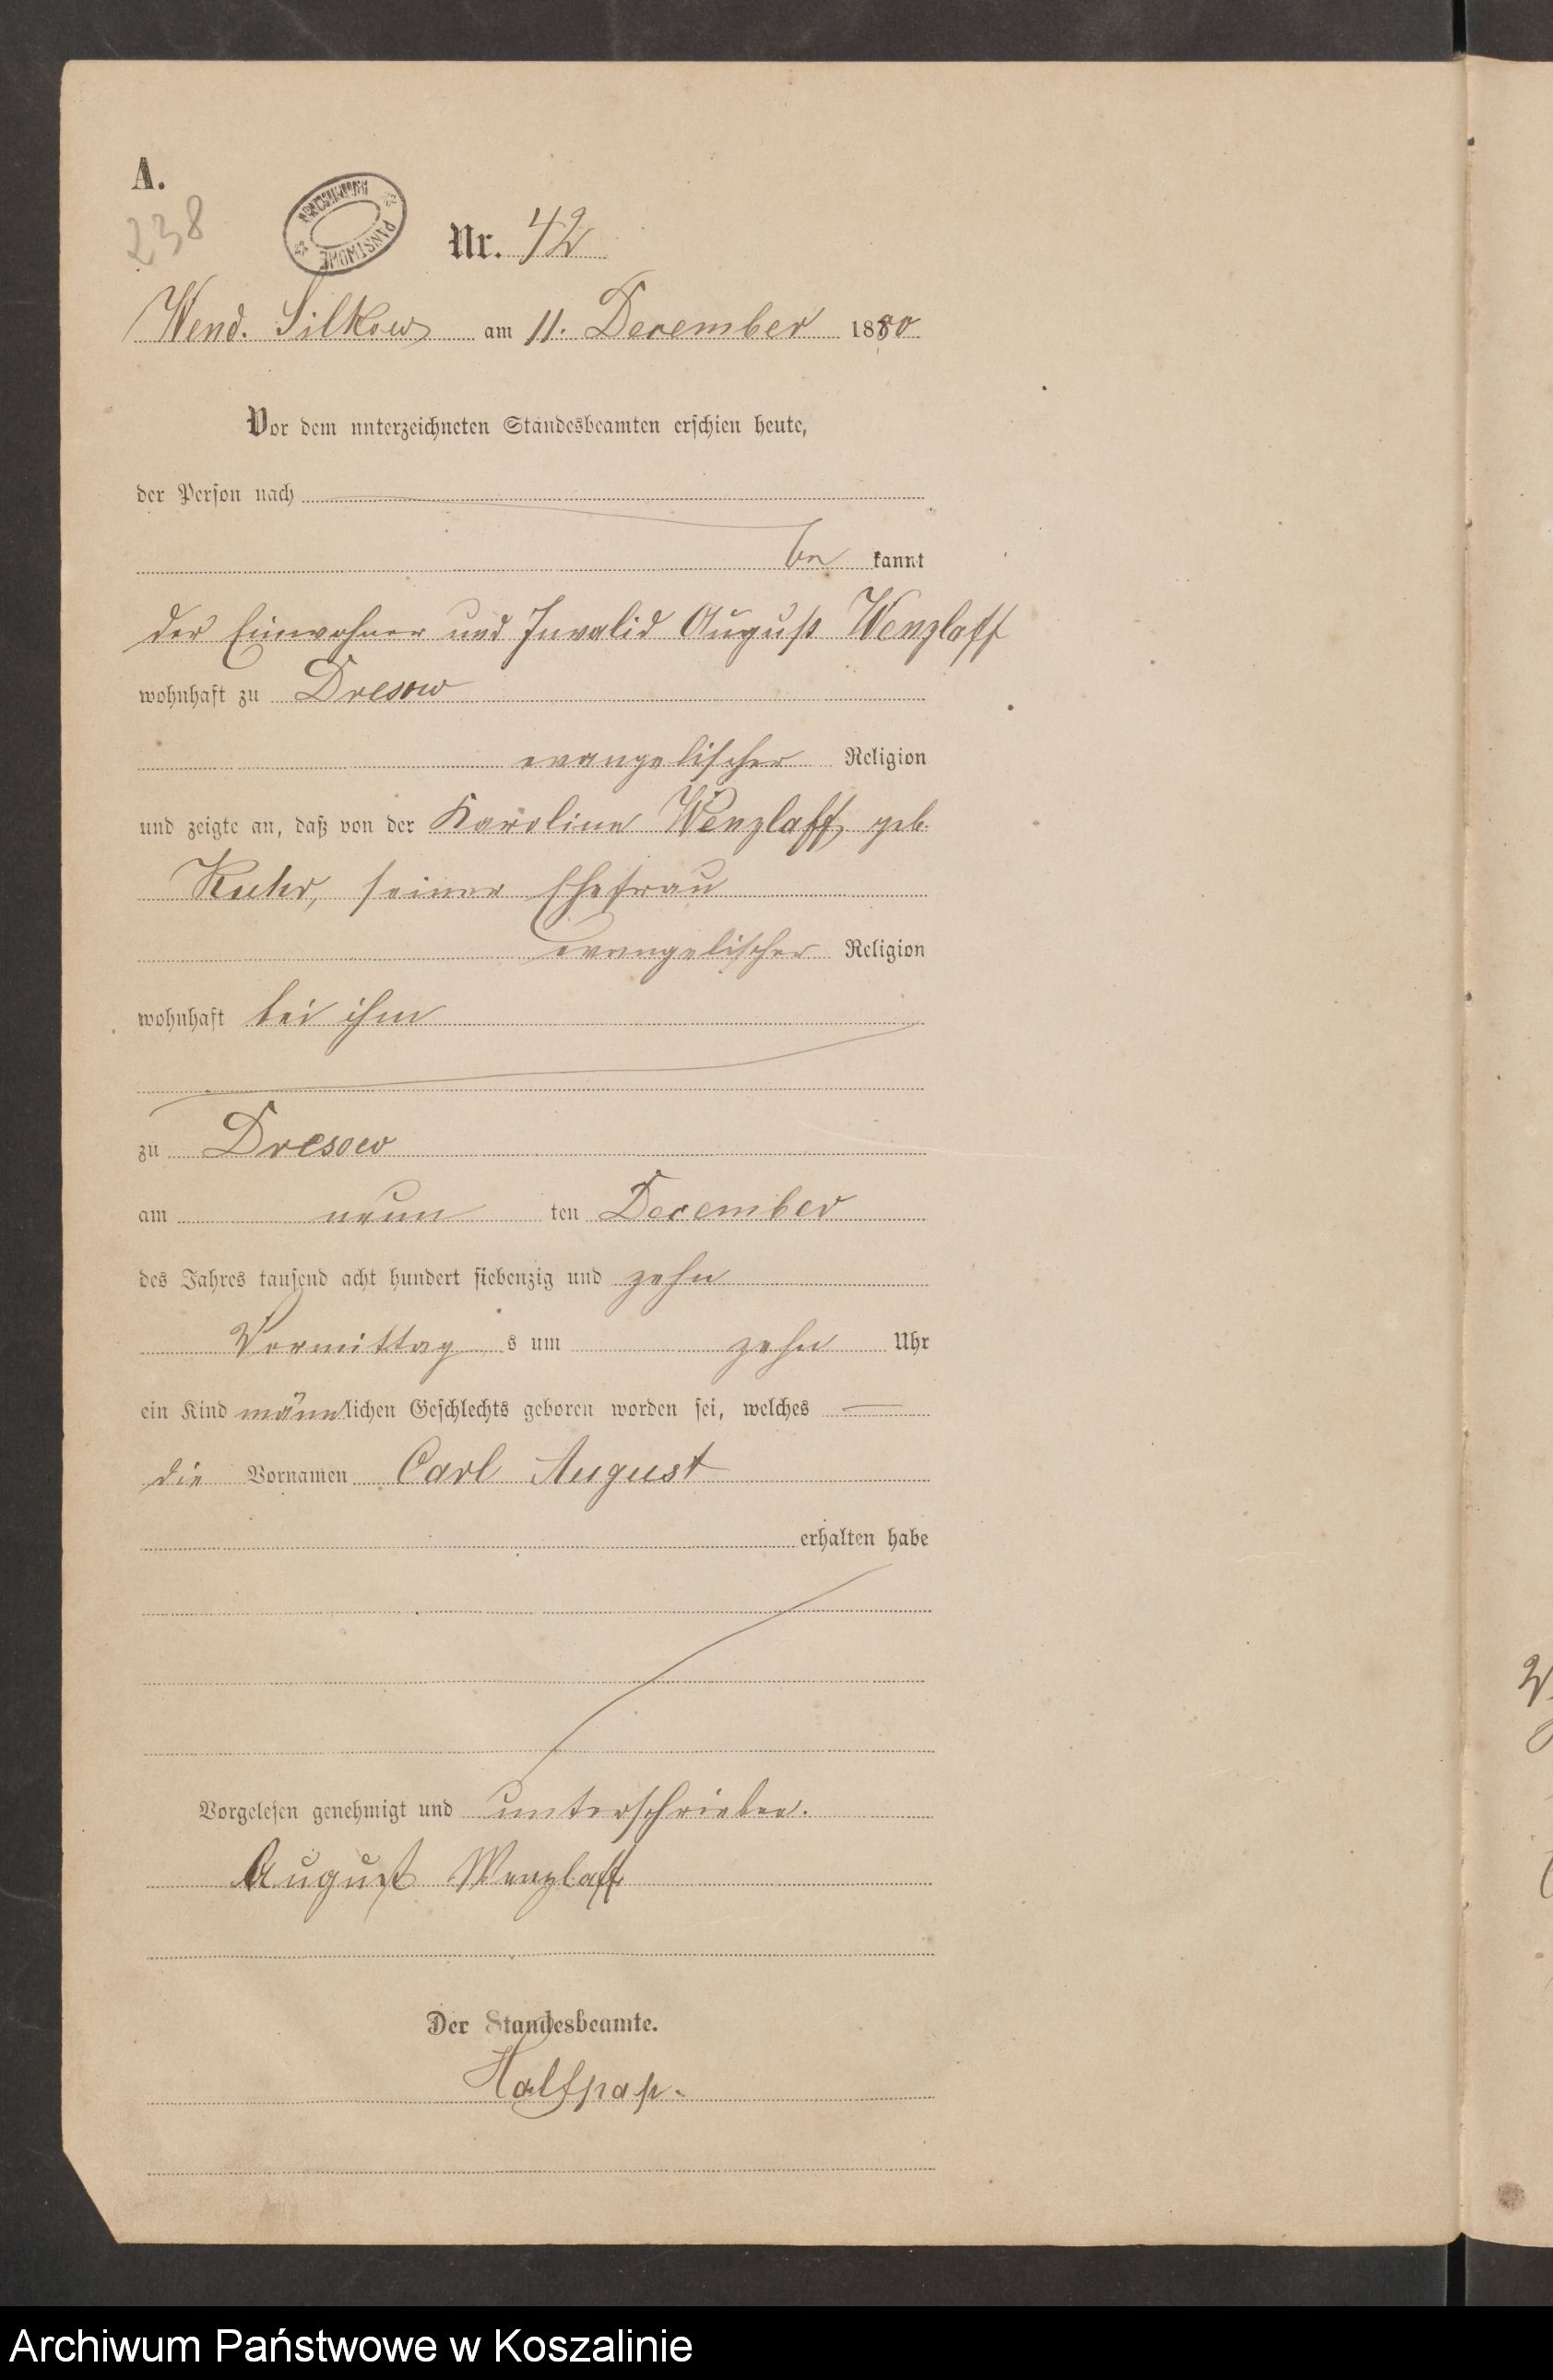 A.
238
Nr. 42
Wend. Silkow am 11. December 1880
Vor dem unterzeichneten Standesbeamten erschien heute,
der Person nach
be kannt
der Einwohner und Invalid August Wenzlaff
wohnhaft zu Dresow
evangelischer Religion
und zeigte an, daß von der Karoline Wenzlaff geb.
Kuhr, seiner Ehefrau
evangelischer Religion
wohnhaft bei ihm
zu Dresow
am neun ten December
des Jahres tausend acht hundert siebenzig und zehn
Vormittag s um zehn Uhr
ein Kind männlichen Geschlechts geboren worden sei, welches —
die Vornamen Carl August
erhalten habe
Vorgelesen genehmigt und unterschrieben.
August Wenzlaff
Der Standesbeamte.
Halfpap.
Archiwum Państwowe w Koszalinie